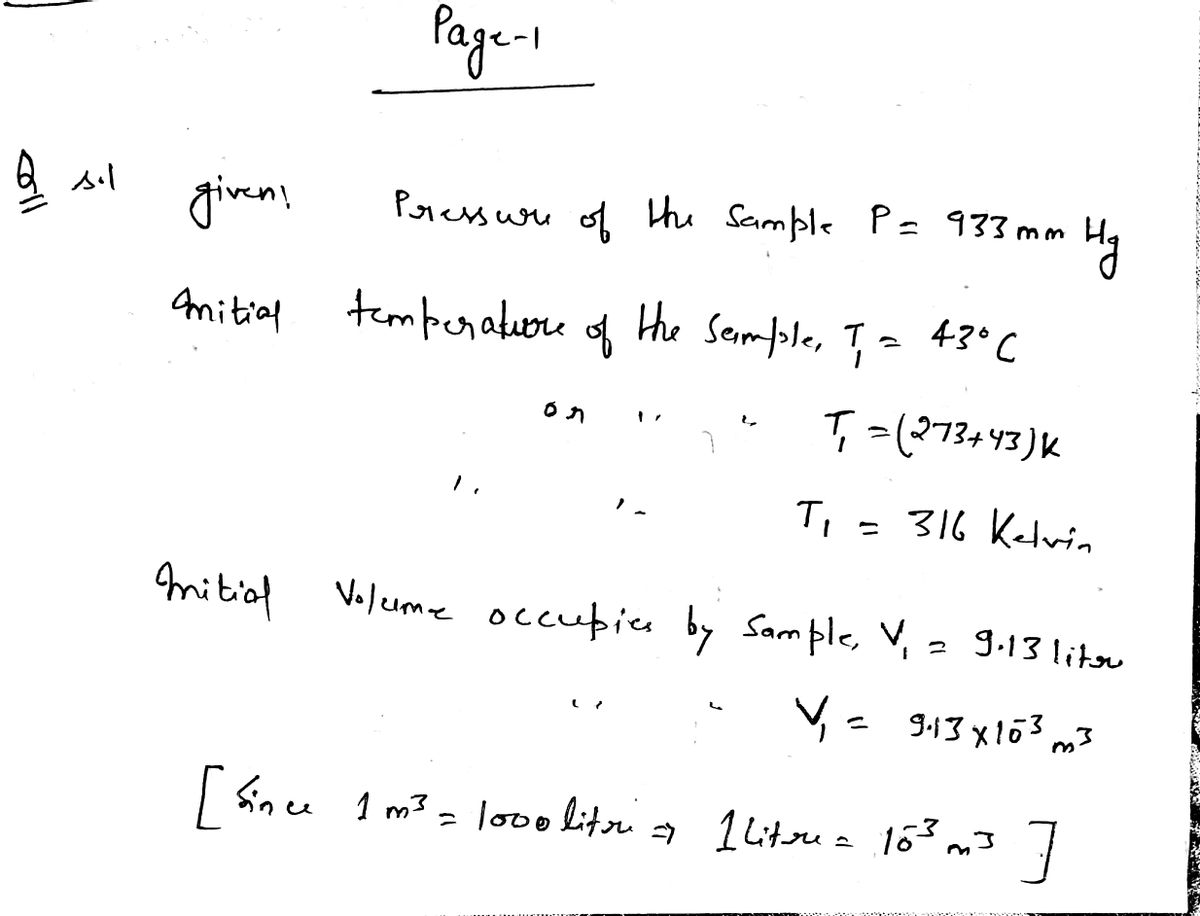 Page-1
Q sol given! Pressure of the Sample P = 933 mm Hg
Initial temperature of the Sample, T₁ = 43°C
or " " T₁ = (273+43)K
" " T₁ = 316 Kelvin
Initial Volume occupies by Sample, V₁ = 9.13 litre
" " V₁ = 9.13 x 10⁻³ m³
[ Since 1 m³ = 1000 litre ⇒ 1 Litre = 10⁻³ m³ ]